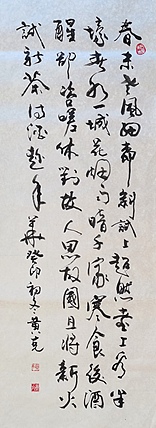 春未老風細柳斜斜試上超然臺上看半
壕春水一城花烟雨暗千家寒食後酒
醒却咨嗟休對故人思故國且將新火
試新茶詩酒趁年華 癸卯初冬黄克